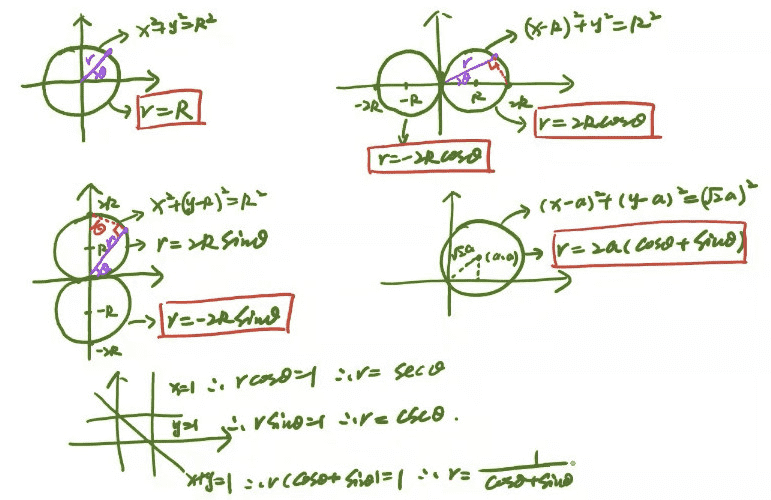 x²+y²=R²
r
θ
r=R
(x-R)²+y²=R²
r
θ
-2R
-R
R
2R
r=2Rcosθ
r=-2Rcosθ
2R
x²+(y-R)²=R²
θ
R
r
r=2Rsinθ
θ
-R
r=-2Rsinθ
-2R
(x-a)²+(y-a)²=(√2a)²
√2a
(a,a)
r=2a(cosθ+sinθ)
x=1 ∴ rcosθ=1 ∴ r= secθ
y=1 ∴ rsinθ=1 ∴ r= cscθ.
x+y=1 ∴ r(cosθ+sinθ)=1 ∴ r= 1/(cosθ+sinθ)